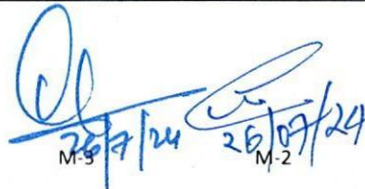 26/7/24 26/07/24
M-3 M-2